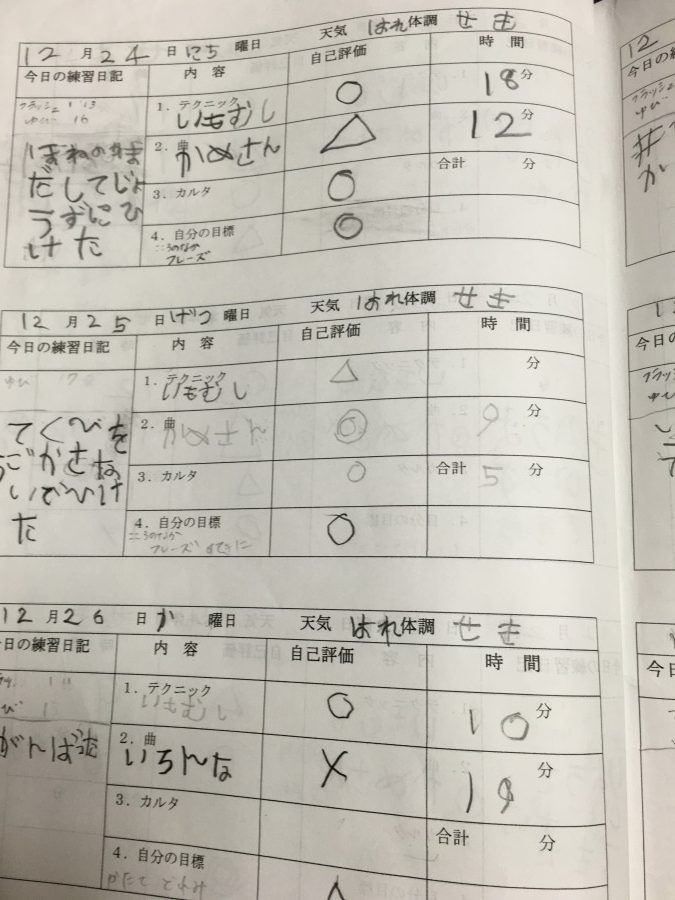 12月24日にち曜日 天気 はれ 体調 せき
今日の練習日記 内容 自己評価 時間
フラッシュ 1'13
ゆび 16
1．テクニック いもむし ○ 18分
2．曲 かめさん △ 12分
3．カルタ ○ 合計 分
4．自分の目標 ◎
こころのなか
フレーズ
ほねのま
だしてじょ
うずにひ
けた
12月25日げつ曜日 天気 はれ 体調 せき
今日の練習日記 内容 自己評価 時間
ゆび
1．テクニック いもむし △ 分
2．曲 かめさん ◎ 9分
3．カルタ ○ 合計 5分
4．自分の目標 ○
こころのなか
フレーズ
てくびを
うごかさな
いでひけ
た
12月26日か曜日 天気 はれ 体調 せき
今日の練習日記 内容 自己評価 時間
1．テクニック いもむし ○ 10分
2．曲 いろんな × 19分
3．カルタ 合計 分
4．自分の目標 △
かたて どれみ
がんばった
12
今日の練
フラッシュ
ゆび
#
か
今日